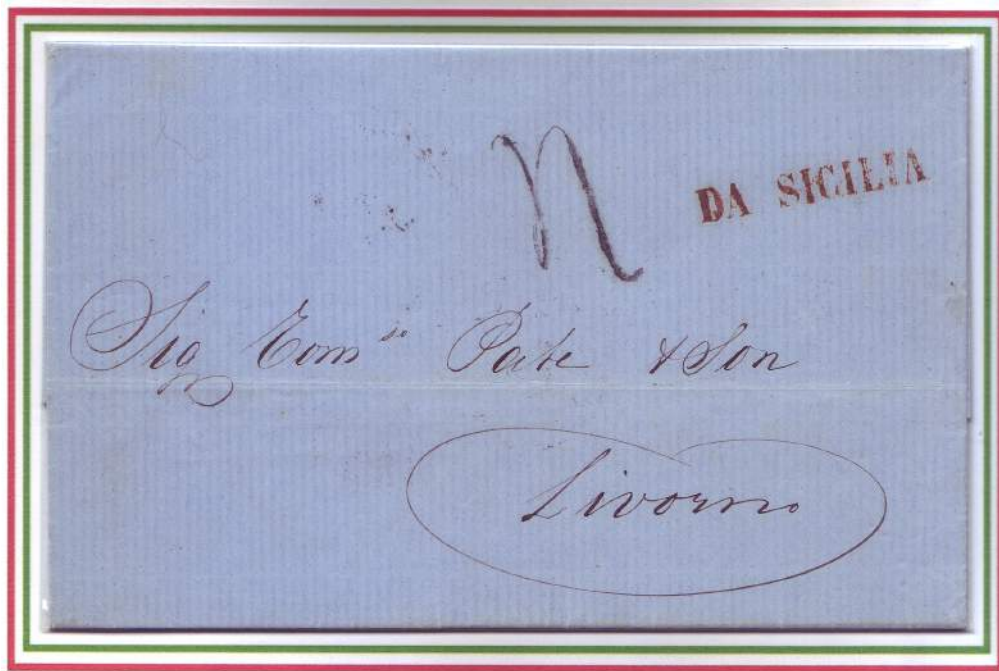 DA SICILIA
Sig Tom so Pate & Son
Livorno